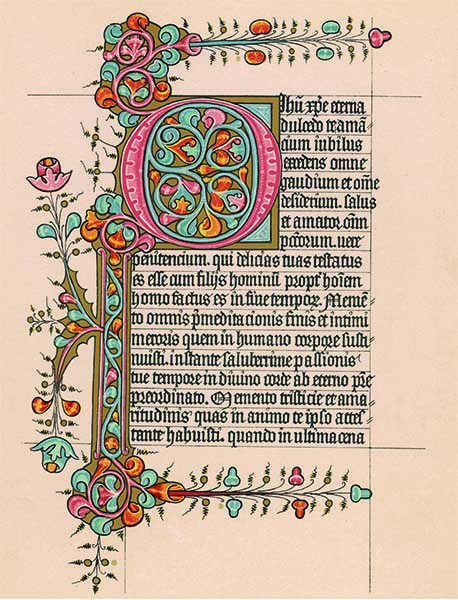 O Jhū xpē eterna
dulcedo te amā
cium iubilus
excedens omne
gaudium et om̄e
desiderium. salus
et amator om̄
pctorum. vere
penitencium. qui delicias tuas testatus
es esse cum filijs hominū propt' hoīem
homo factus es in fine tempor. Memē
to omnis p̄meditacionis finis et intimi
meroris quem in humano corpore susti
nuisti. instante saluberrime passionis
tue tempore in divino corde ab eterno p̄e
preordinato. Memento tristicie et ama
ritudinis quas in animo te ipso attes
tante habuisti. quando in ultima cena